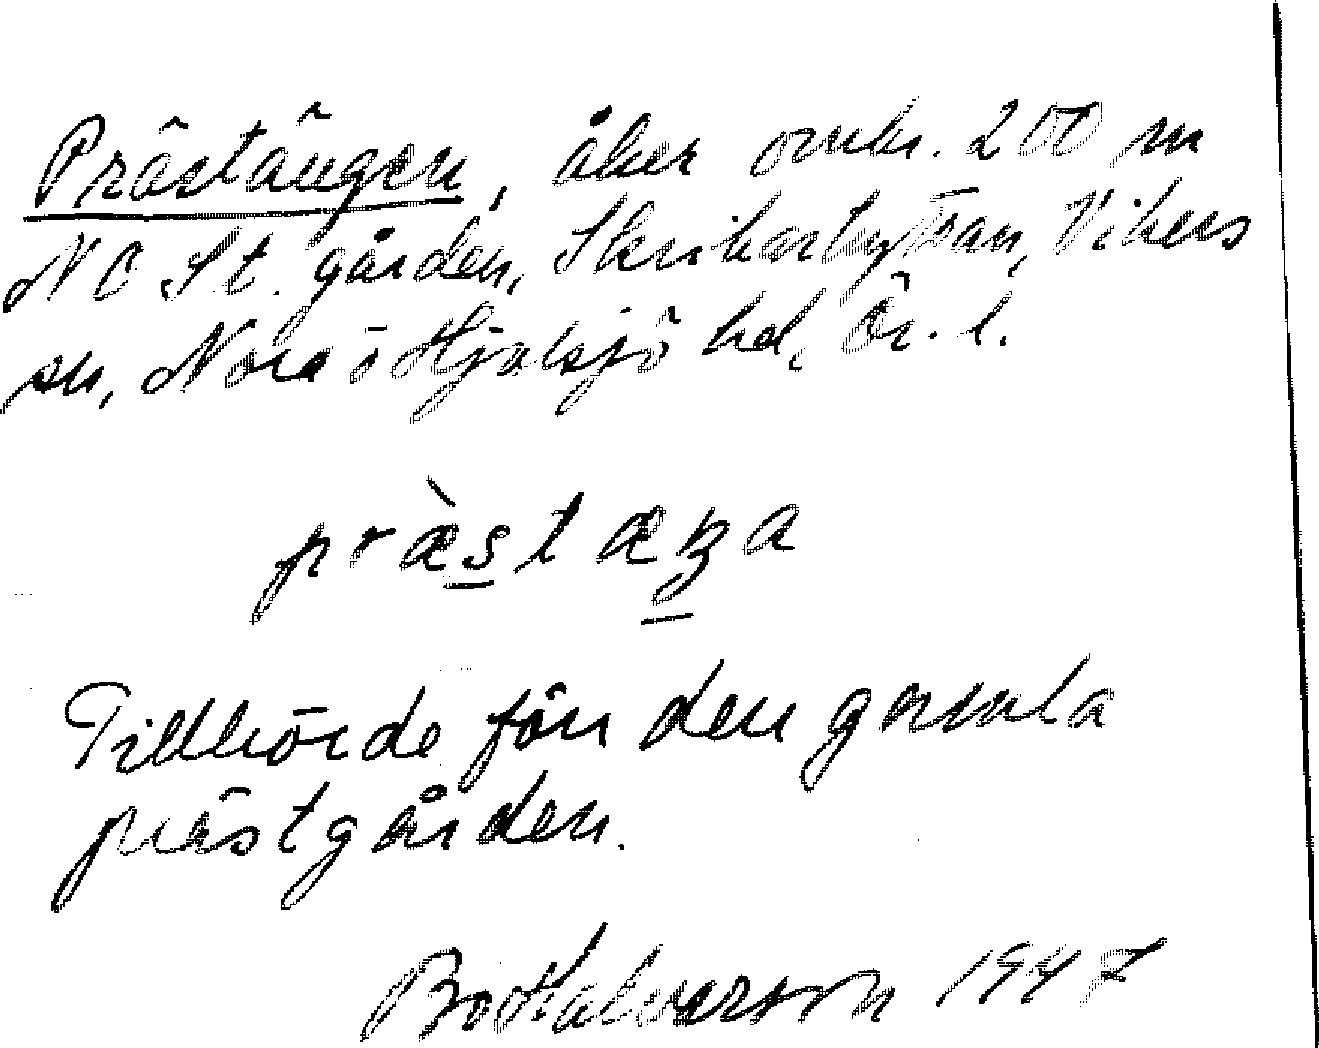 Prästängen, åker omkr. 200 m
NO St. gården, Skrikarhyttan, Vikers
sn, Nora o Hjulsjö hd, Ör. l.
præ̀stæŋa
Tillhörde förr den gamla
prästgården.
Bo Halvarson 1947